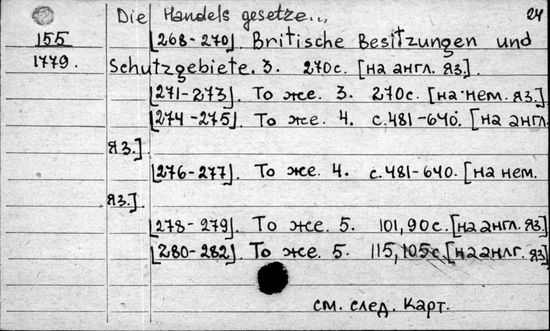 Die Handels gesetze... 24
155 [268-270]. Britische Besitzungen und
1779. Schutzgebiete. 3. 270с. [на англ. яз.].
[271-273]. То же. 3. 270с. [на нем. яз.]
[274-275]. То же. 4. с.481-640. [на англ.
яз.]
[276-277]. То же. 4. с.481-640. [на нем.
яз.].
[278-279]. То же. 5. 101,90с. [на англ. яз.]
[280-282]. То же. 5. 115,105с. [на анлг. яз]
см. след. карт.